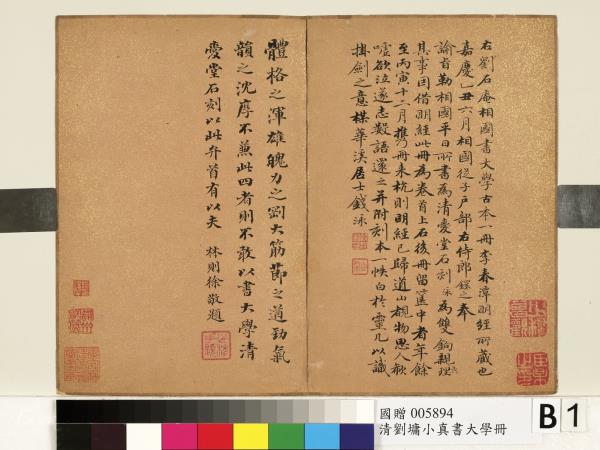 右劉石庵相國書大學古本一冊李春潭明經所藏也
嘉慶乙丑六月相國從子戶部右侍郎鐶之奉
諭旨勒相國平日所書為清愛堂石刻泳為雙鉤親理
其事因借明經此冊為卷首上石後冊留篋中者年餘
至丙寅十二月攜冊來杭則明經已歸道山覩物思人歔
噓欲泣遂志數語還之并附刻本一帙白於靈几以識
掛劍之意楳華溪居士錢泳
體格之渾雄魄力之劉大筋節之遒勁氣
韻之沈厚不兼此四者則不敢以書大學清
愛堂石刻以此弁首有以夫
林則徐敬題
國贈 005894
清劉墉小真書大學冊
B 1